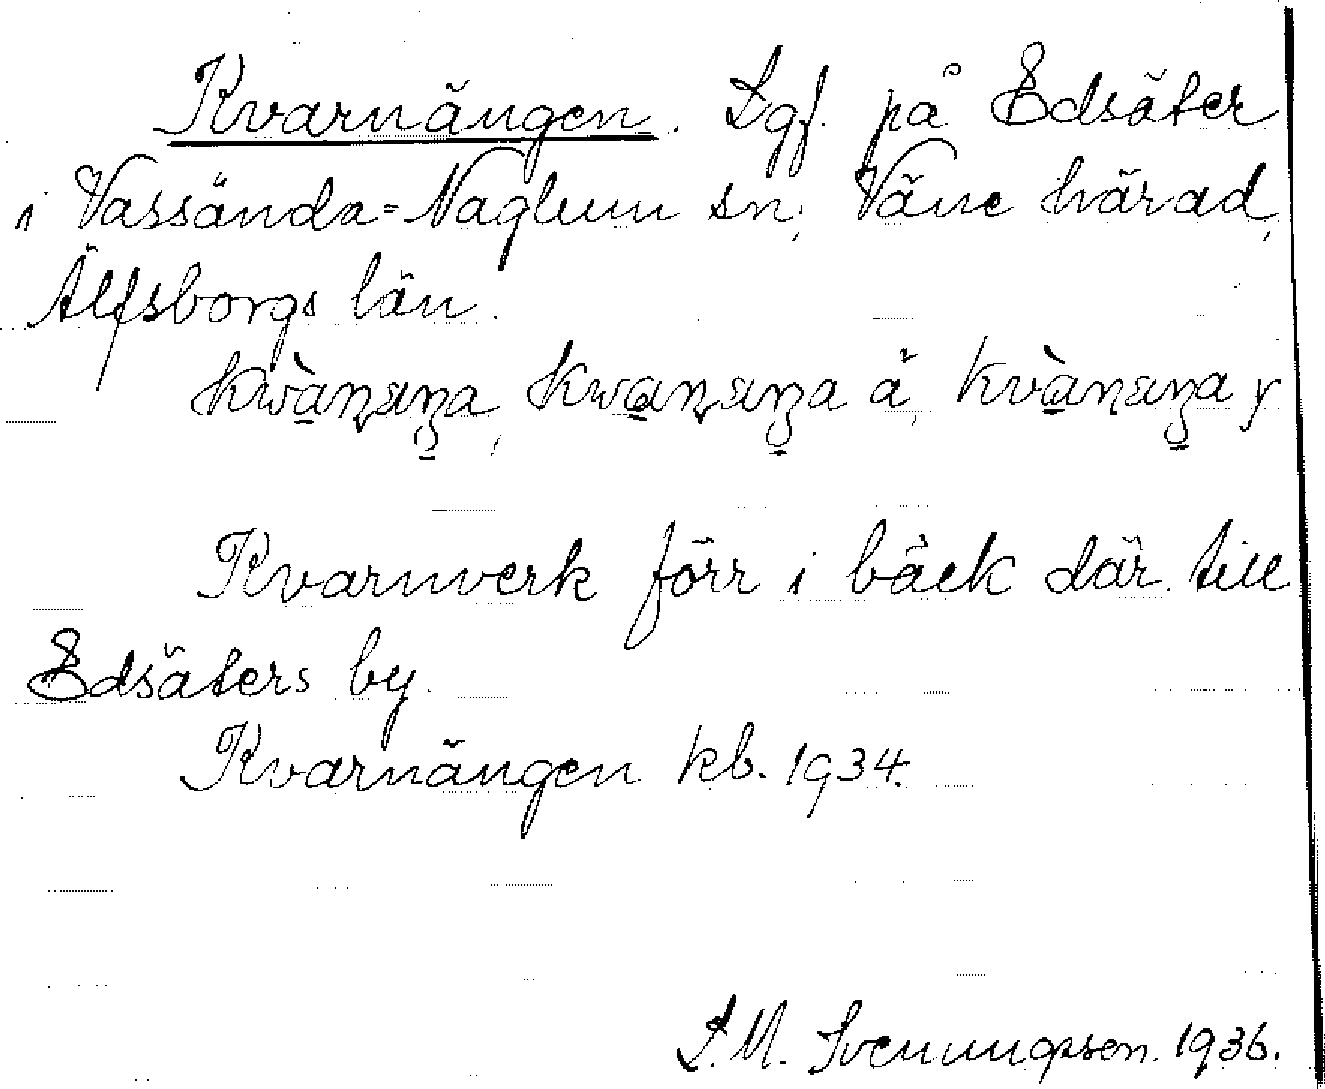 Kvarnängen. Lgf. på Edsäter
i Vassända-Naglum sn, Väne härad,
Älfsborgs län.
å, y
Kvarnverk förr i bäck där till
Edsäters by.
Kvarnängen kb. 1934.
L.M. Svenungsson. 1936.